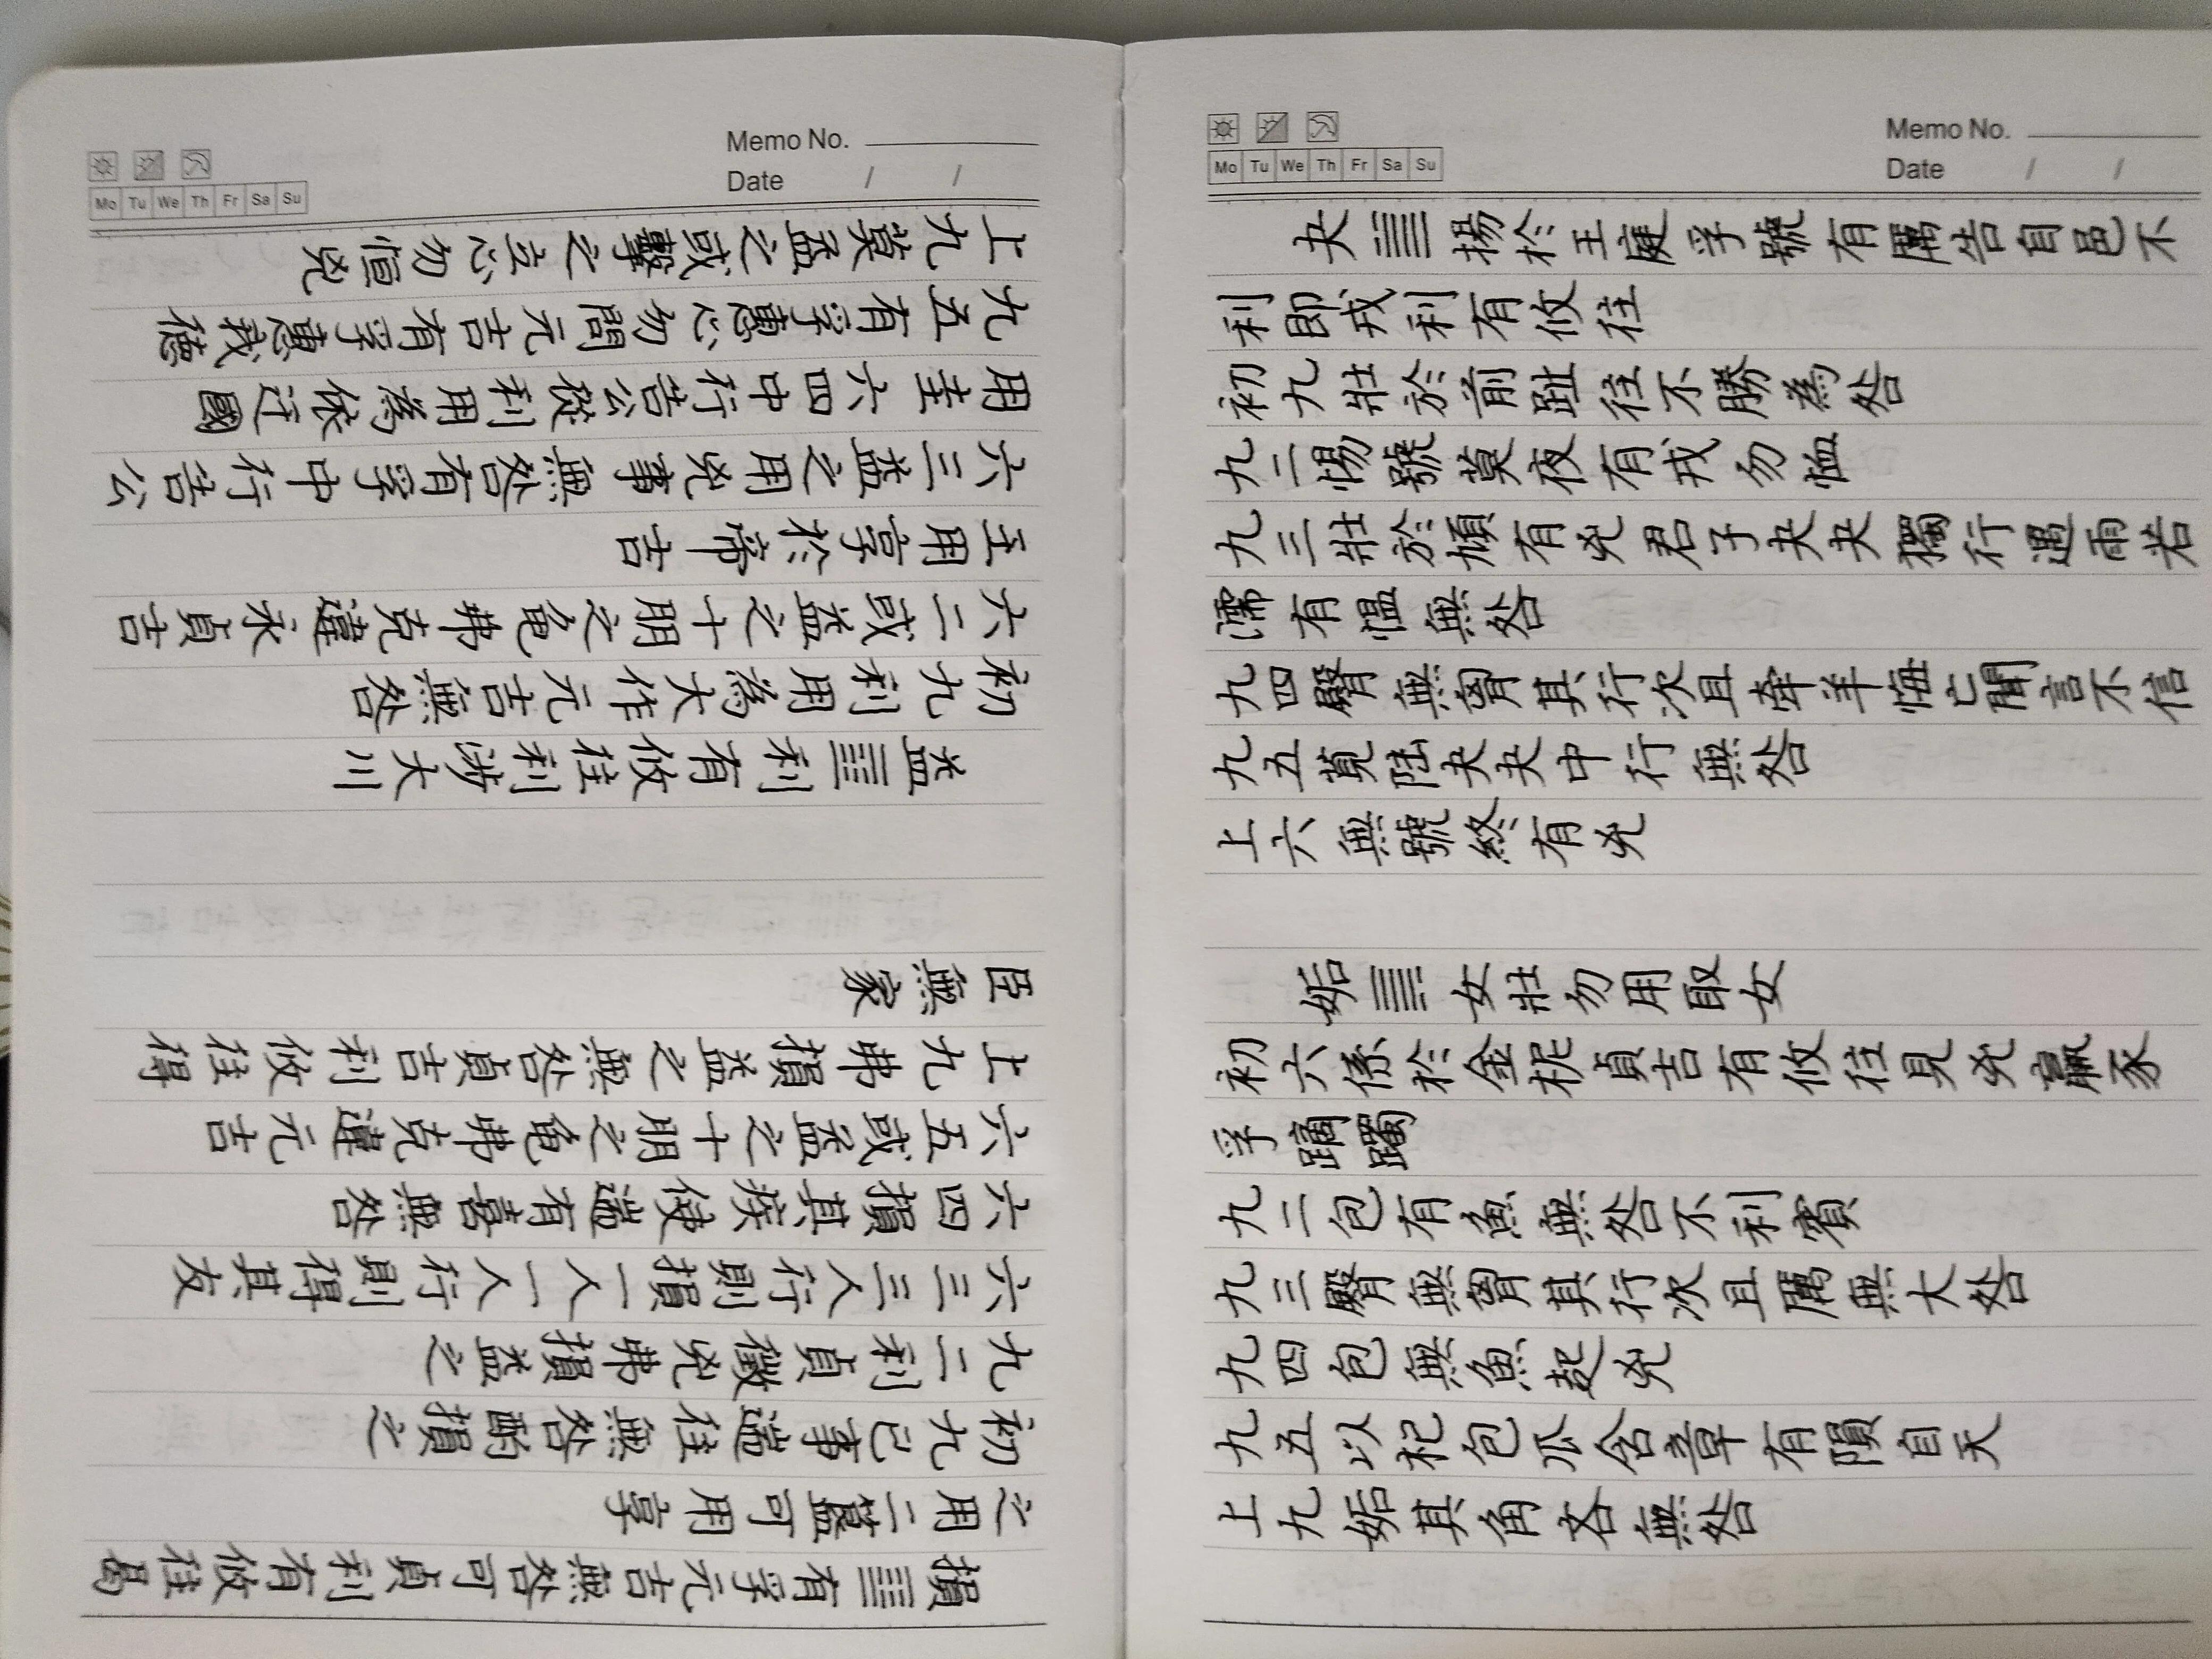 Memo No.
Mo Tu We Th Fr Sa Su
Date / /
損䷨有孚元吉無咎可貞利有攸往曷
之用二簋可用享
初九已事遄往無咎酌損之
九二利貞徵凶弗損益之
六三三人行則損一人一人行則得其友
六四損其疾使遄有喜無咎
六五或益之十朋之龜弗克違元吉
上九弗損益之無咎貞吉利攸往得
臣無家
益䷩利有攸往利涉大川
初九利用為大作元吉無咎
六二或益之十朋之龜弗克違永貞吉
王用享於帝吉
六三益之用凶事無咎有孚中行告公
用圭六四中行告公從利用為依迁國
九五有孚惠心勿問元吉有孚惠我德
上九莫益之或擊之立心勿恒凶
Memo No.
Mo Tu We Th Fr Sa Su
Date / /
夬䷪揚於王庭孚號有厲告自邑不
利即戎利有攸往
初九壯於前趾往不勝為咎
九二惕號莫夜有戎勿恤
九三壯於頄有凶君子夬夬獨行遇雨若
濡有慍無咎
九四臀無膚其行次且牽羊悔亡聞言不信
九五莧陸夬夬中行無咎
上六無號終有凶
姤䷫女壯勿用取女
初六係於金柅貞吉有攸往見凶羸豕
孚蹢躅
九二包有魚無咎不利賓
九三臀無膚其行次且厲無大咎
九四包無魚起凶
九五以杞包瓜含章有隕自天
上九姤其角吝無咎